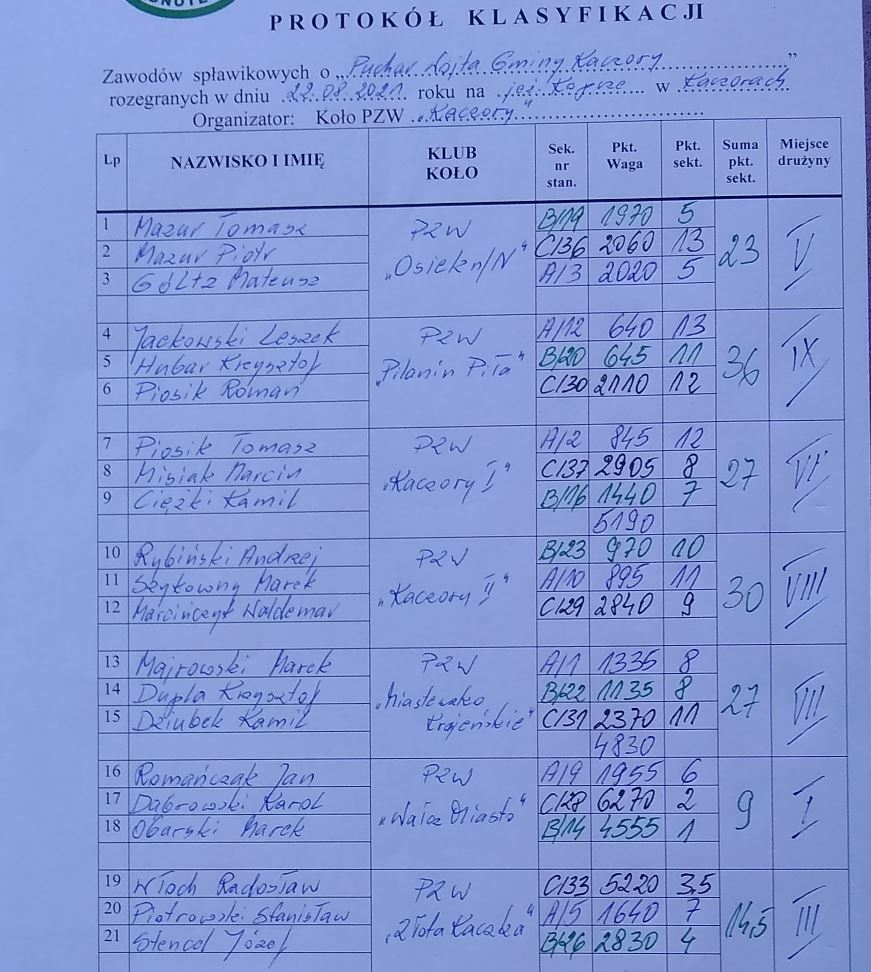 NOTE
PROTOKÓŁ KLASYFIKACJI
Zawodów spławikowych o „Puchar Wójta Gminy Kaczory”
rozegranych w dniu 22.08.2021 roku na jez. Kopcze w Kaczorach
Organizator: Koło PZW „Kaczory”
Lp NAZWISKO I IMIĘ KLUB KOŁO Sek. nr stan. Pkt. Waga Pkt. sekt. Suma pkt. sekt. Miejsce drużyny
1 Mazur Tomasz PZW B/19 1970 5
2 Mazur Piotr „Osiek n/N” C/36 2060 13 23 V
3 Góltz Mateusz A/3 2020 5
4 Jackowski Leszek PZW A/12 640 13
5 Hubar Krzysztof „Pilanin Piła” B/20 645 11 36 IX
6 Piosik Roman C/30 2110 12
7 Piosik Tomasz PZW A/2 845 12
8 Misiak Marcin „Kaczory I” C/37 2905 8 27 VI
9 Ciężki Kamil B/16 1440 7
5190
10 Rybiński Andrzej PZW B/23 970 10
11 Szykowny Marek „Kaczory II” A/10 895 11 30 VIII
12 Marcińczyk Waldemar C/29 2840 9
13 Majrowski Marek PZW A/1 1335 8
14 Dupla Krzysztof „Miasteczko B/22 1135 8 27 VII
15 Dziubek Kamil Krajeńskie” C/31 2370 11
4830
16 Romańczak Jan PZW A/9 1955 6
17 Dąbrowski Karol „Wałcz Miasto” C/28 6270 2 9 I
18 Obarski Marek B/14 4555 1
19 Włoch Radosław PZW C/33 5220 3,5
20 Piotrowski Stanisław „Złota Kaczka” A/5 1640 7 14,5 III
21 Stencel Józef B/26 2830 4